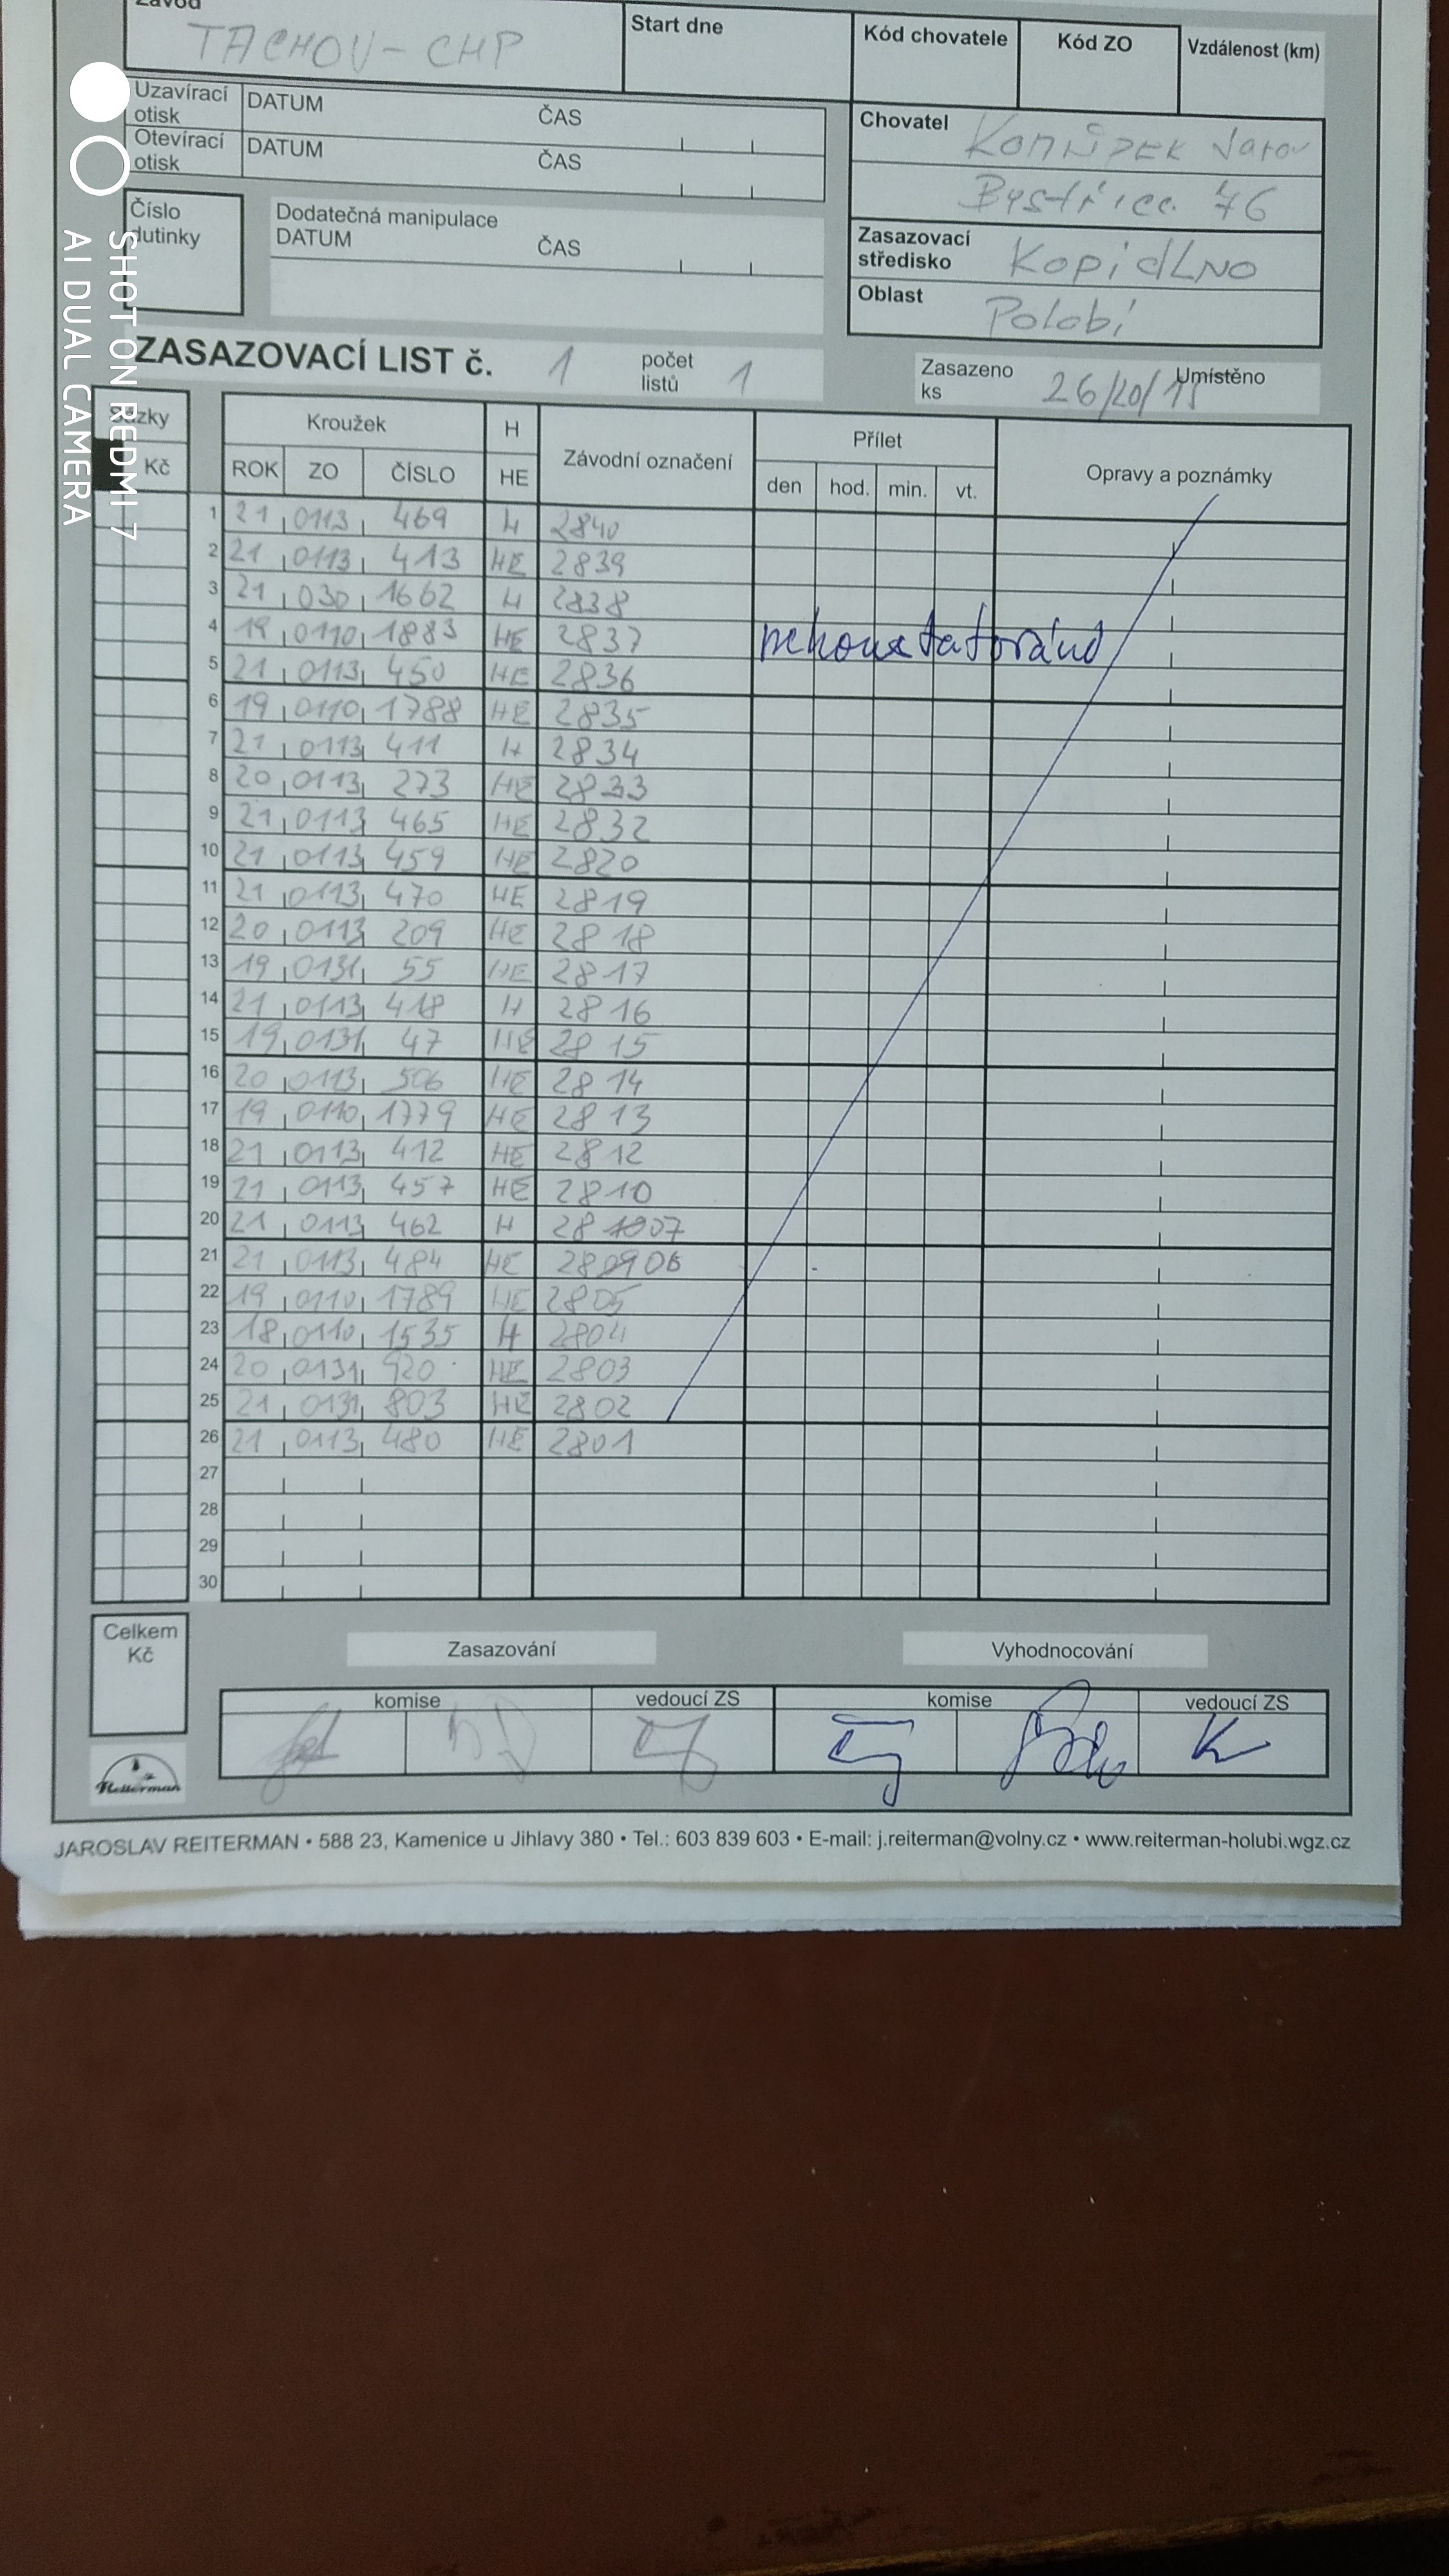 Závod
TACHOV - CHP
Start dne
Kód chovatele
Kód ZO
Vzdálenost (km)
Uzavírací otisk DATUM ČAS
Otevírací otisk DATUM ČAS
Chovatel
Bystřice 46
Číslo dutinky
Dodatečná manipulace
DATUM ČAS
Zasazovací středisko KopidLNO
Oblast Polabí
ZASAZOVACÍ LIST č. 1 počet listů 1
Zasazeno ks 26/20/15 Umístěno
Sázky
Kč
Kroužek
H
HE
Závodní označení
Přílet
Opravy a poznámky
ROK ZO ČÍSLO
den hod. min. vt.
1 21 0113 469 H 2840
2 21 0113 413 HE 2839
3 21 030 1662 H 2838
4 19 0110 1883 HE 2837 nekonstatováno
5 21 0113 450 HE 2836
6 19 0110 1788 HE 2835
7 21 0113 411 H 2834
8 20 0113 273 HE 2833
9 21 0113 465 HE 2832
10 21 0113 459 HE 2820
11 21 0113 470 HE 2819
12 20 0113 209 HE 2818
13 19 0131 55 HE 2817
14 21 0113 418 H 2816
15 19 0131 47 HE 2815
16 20 0113 506 HE 2814
17 19 0110 1779 HE 2813
18 21 0113 412 HE 2812
19 21 0113 457 HE 2810
20 21 0113 462 H 281007
21 21 0113 484 HE 280906
22 19 0110 1789 HE 2805
23 18 0110 1535 H 2804
24 20 0131 920 HE 2803
25 21 0131 803 HE 2802
26 21 0113 480 HE 2801
27
28
29
30
Celkem Kč
Zasazování
Vyhodnocování
komise
vedoucí ZS
komise
vedoucí ZS
Reiterman
JAROSLAV REITERMAN • 588 23, Kamenice u Jihlavy 380 • Tel.: 603 839 603 • E-mail: j.reiterman@volny.cz • www.reiterman-holubi.wgz.cz
SHOT ON REDMI 7
AI DUAL CAMERA